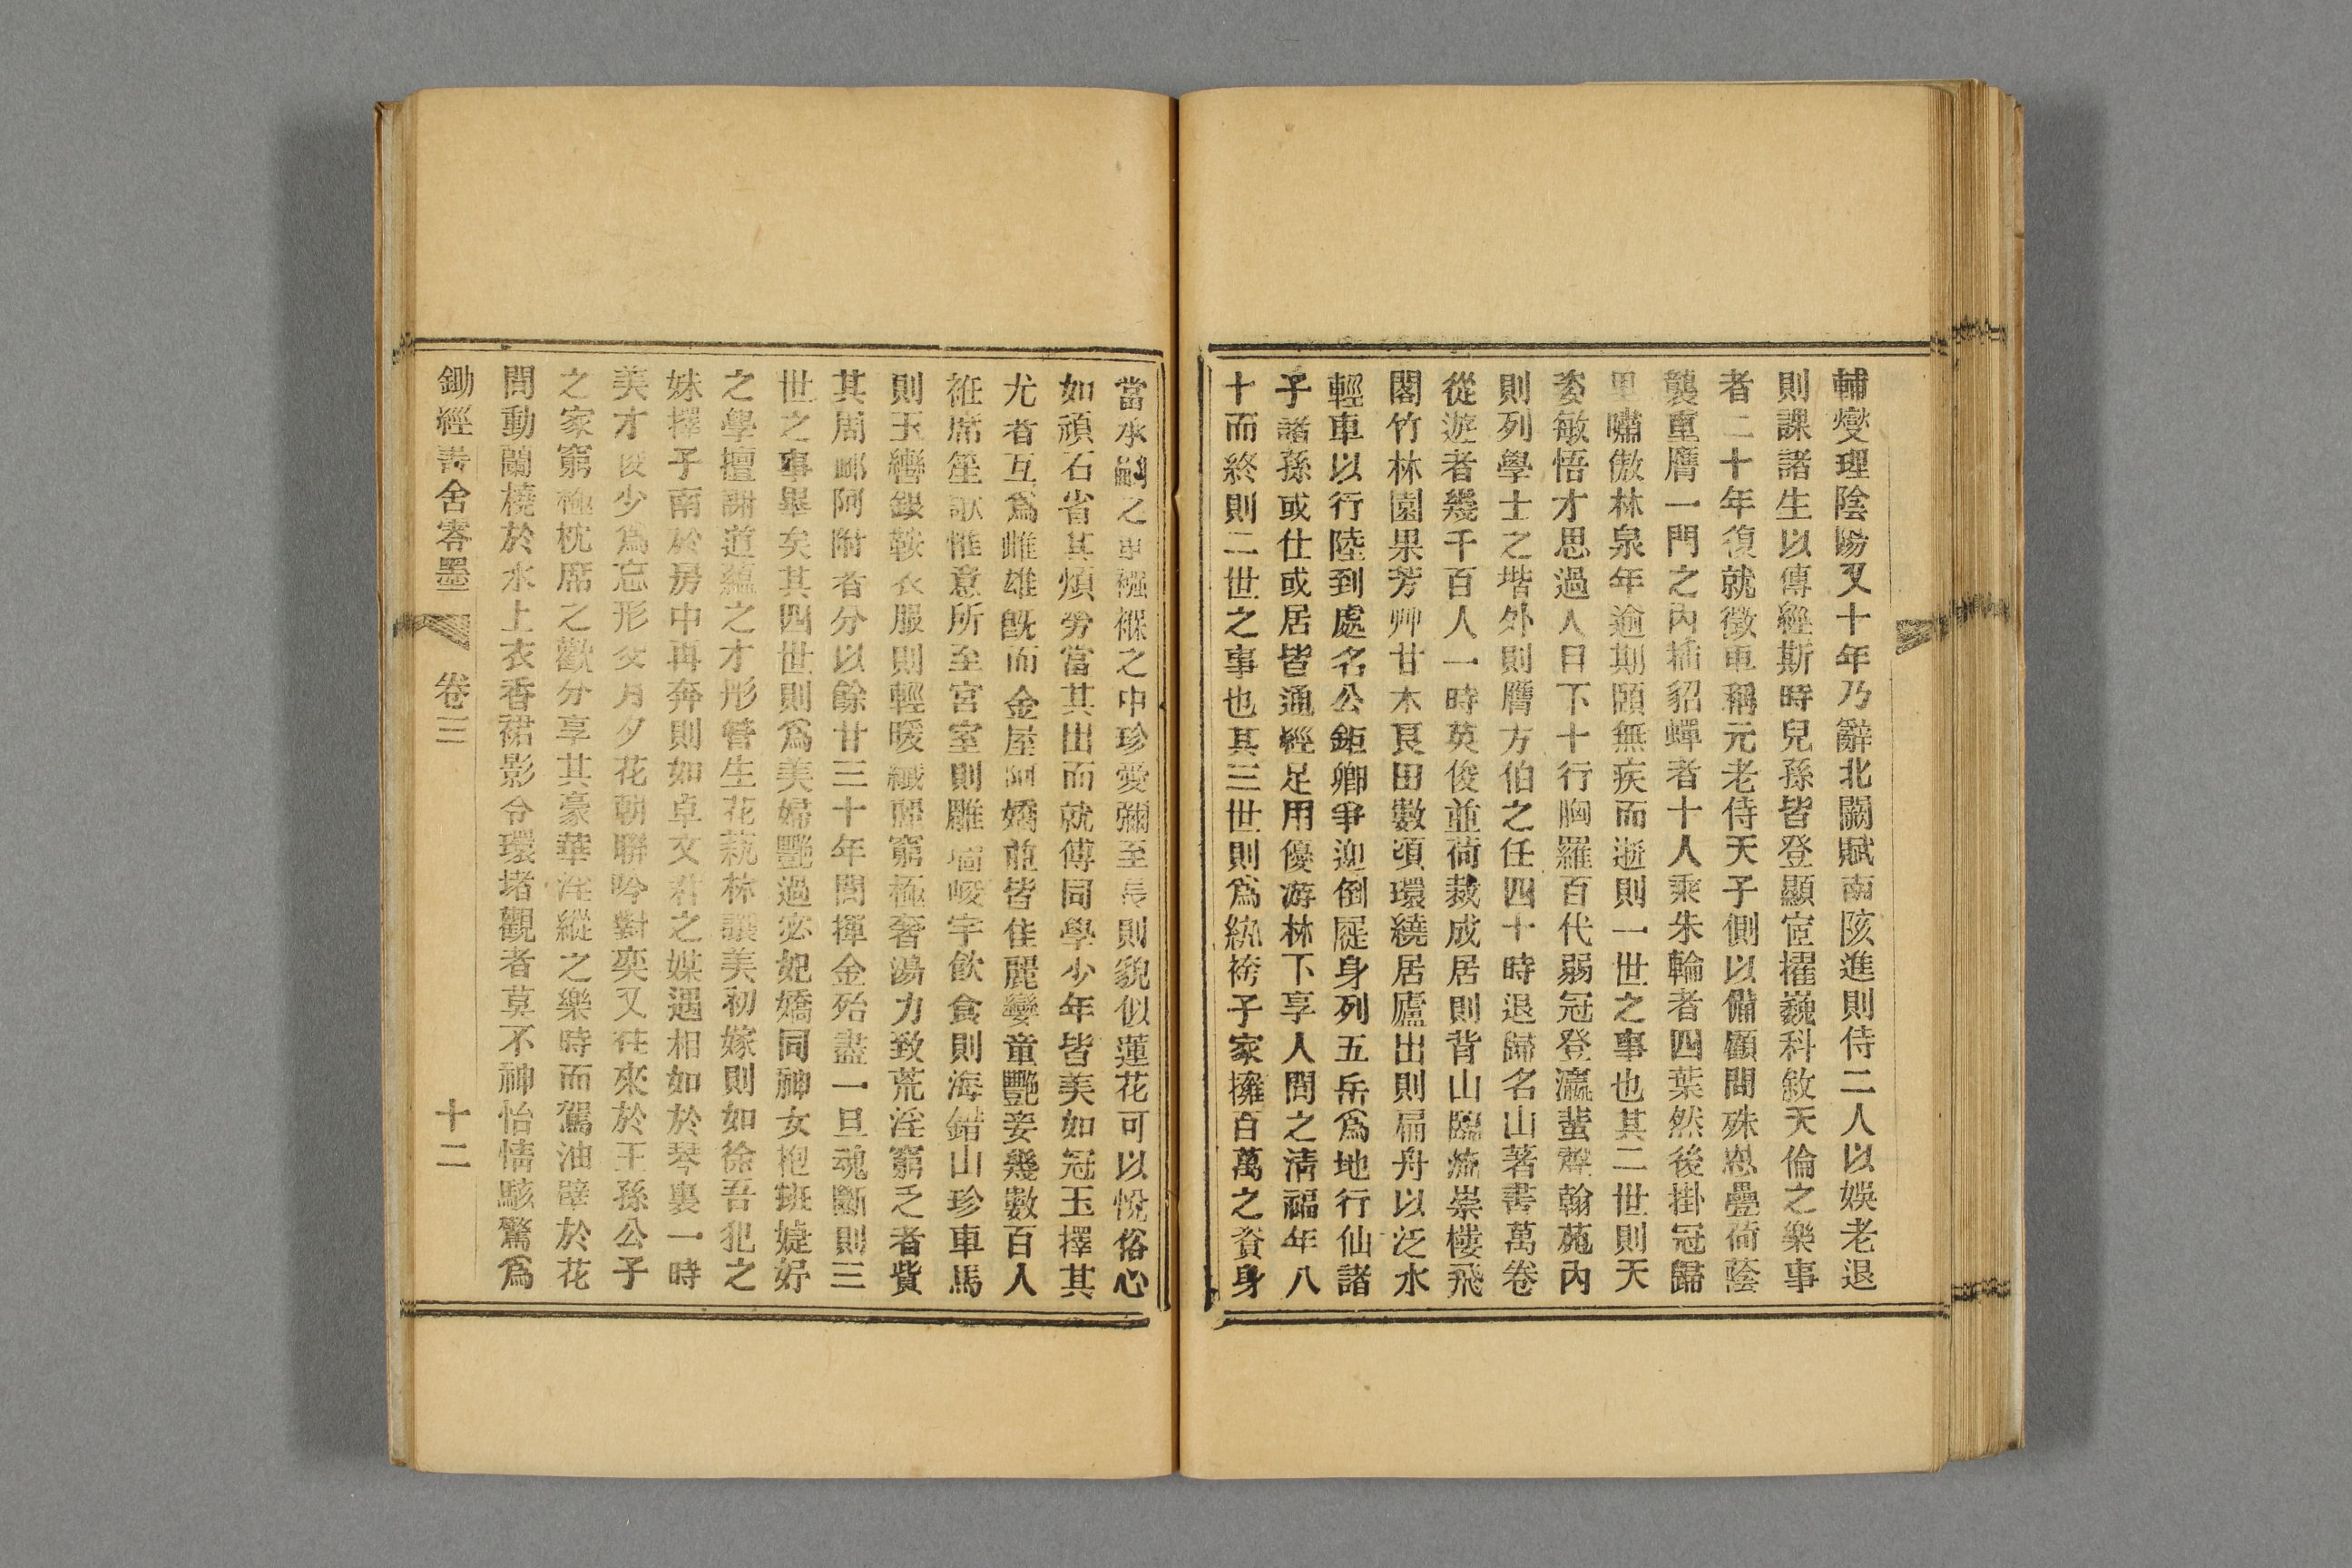 輔燮理陰陽又十年乃辭北闕賦南陔進則侍二人以娛老退
則課諸生以傳經斯時兒孫皆登顯宦擢巍科敘天倫之樂事
者二十年復就徵車稱元老侍天子側以備顧問殊恩疊荷蔭
襲重膺一門之內插貂蟬者十人乘朱輪者四葉然後掛冠歸
里嘯傲林泉年逾期頤無疾而逝則一世之事也其二世則天
姿敏悟才思過人目下十行胸羅百代弱冠登瀛蜚聲翰苑內
則列學士之堦外則膺方伯之任四十時退歸名山著書萬卷
從遊者幾千百人一時英俊並荷裁成居則背山臨流崇樓飛
閣竹林園果芳艸甘木良田數頃環繞居廬出則扁舟以泛水
輕車以行陸到處名公鉅卿爭迎倒屣身列五岳為地行仙諸
子諸孫或仕或居皆通經足用優游林下享人間之清福年八
十而終則二世之事也其三世則為紈袴子家擁百萬之資身
當承嗣之重襁褓之中珍愛彌至長則貌似蓮花可以悅俗心
如頑石省其煩勞當其出而就傅同學少年皆美如冠玉擇其
尤者互為雌雄既而金屋阿嬌並皆佳麗孌童艷妾幾數百人
袵席笙歌惟意所至宮室則雕墻峻宇飲食則海錯山珍車馬
則玉轡銀鞍衣服則輕暖纖麗窮極奢蕩力致荒淫窮乏者貲
其周䘏阿附者分以餘甘三十年間揮金殆盡一旦魂斷則三
世之事畢矣其四世則為美婦艷過宓妃嬌同神女抱班婕妤
之學擅謝道蘊之才彤管生花萟林讓美初嫁則如徐吾犯之
妹擇子南於房中再奔則如卓文君之媒遇相如於琴裏一時
美才俊少為忘形交月夕花朝聯吟對奕又往來於王孫公子
之家窮極枕席之歡分享其豪華淫縱之樂時而駕油壁於花
間動蘭橈於水上衣香裙影令環堵觀者莫不神怡情駭驚為
鋤經書舍零墨 卷三 十二